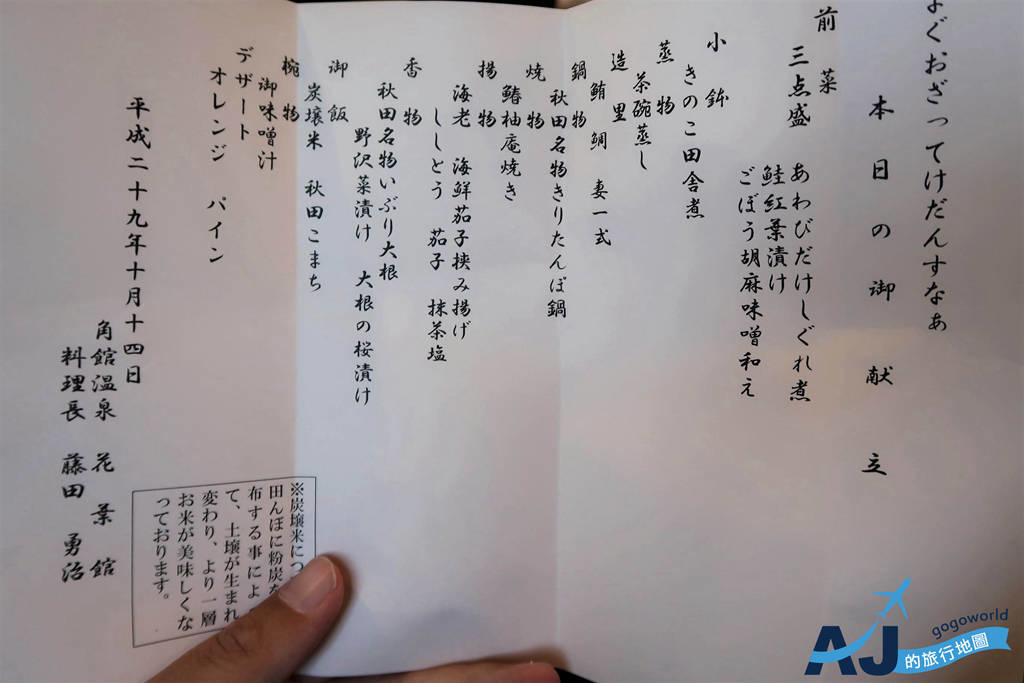 ょぐおざってけだんすなぁ
本日の御献立
前菜
三点盛
あわびだけしぐれ煮
鮭紅葉漬け
ごぼう胡麻味噌和え
小鉢
きのこ田舎煮
蒸物
茶碗蒸し
造里
鮪 鯛 妻一式
鍋物
秋田名物きりたんぽ鍋
焼物
鰆柚庵焼き
揚物
海老 海鮮茄子挟み揚げ
ししとう 茄子 抹茶塩
香物
秋田名物いぶり大根
野沢菜漬け 大根の桜漬け
御飯
炭壌米 秋田こまち
椀物
御味噌汁
デザート
オレンジ パイン
平成二十九年十月十四日
角館温泉 花葉館
料理長 藤田 勇治
※炭壌米につ
田んぼに粉炭を
布する事によ
て、土壌が生まれ
変わり、より一層
お米が美味しくな
っております。
AJ
的旅行地圖
gogoworld